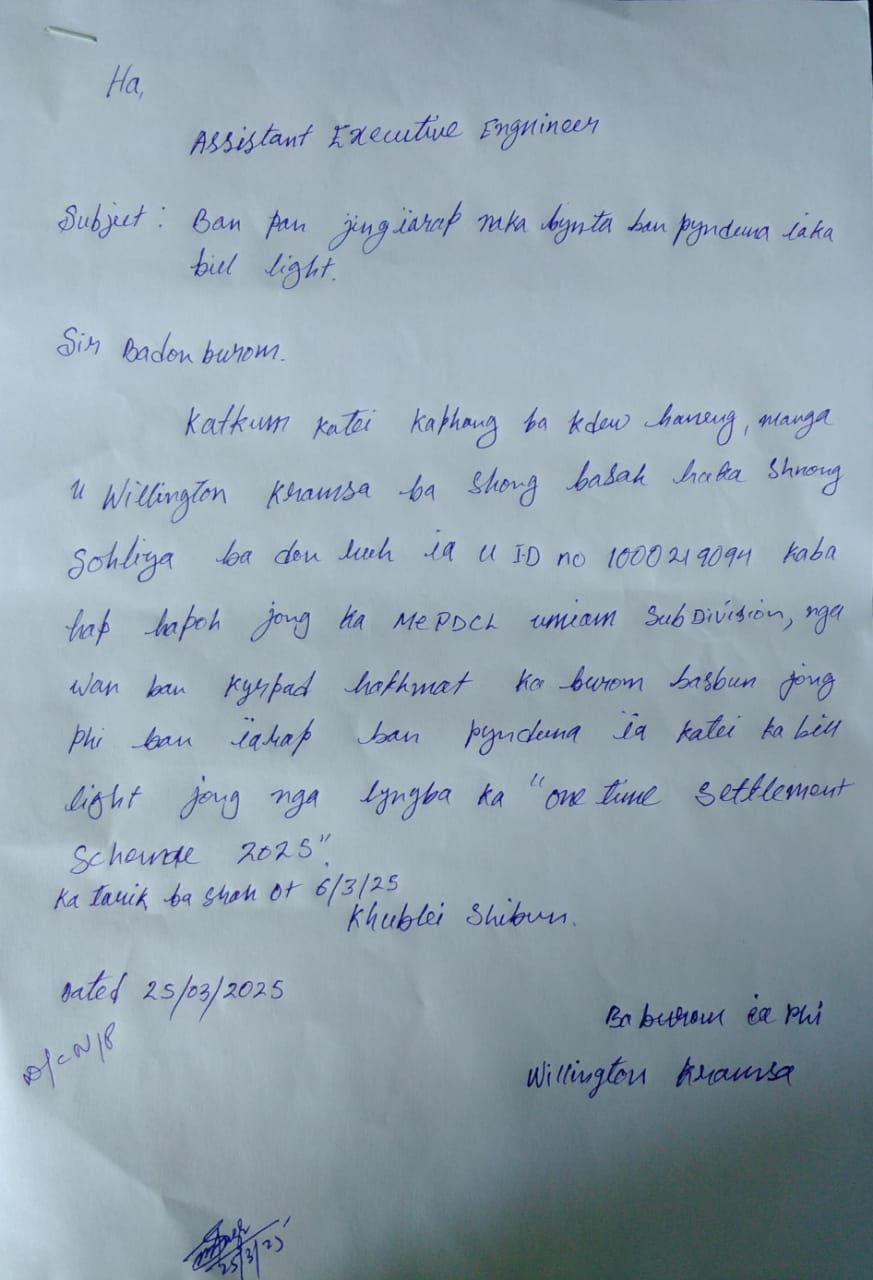 Ha,
Assistant Executive Engnineer
Subject : Ban pan jingïarap naka bynta ban pynduna ïaka
bill light.
Sir Badon burom.
Katkum katei kaphang ba kdew haneng, manga
u Willington Kharmsa ba shong basah haka Shnong
Sohliya ba don huh ia u ID no 1000219094 kaba
hap hapoh jong ka MePDCL umiam SubDivision, nga
wan ban kyrpad hakhmat ka burom basbun jong
phi ban ïarap ban pynduna ïa katei ka bill
light jong nga lyngba ka "one time settlement
Scheme 2025".
Ka tarik ba shah ot 6/3/25
Khublei Shibun.
Dated 25/03/2025
Ba burom ia phi
Willington Kharmsa
25/3/25